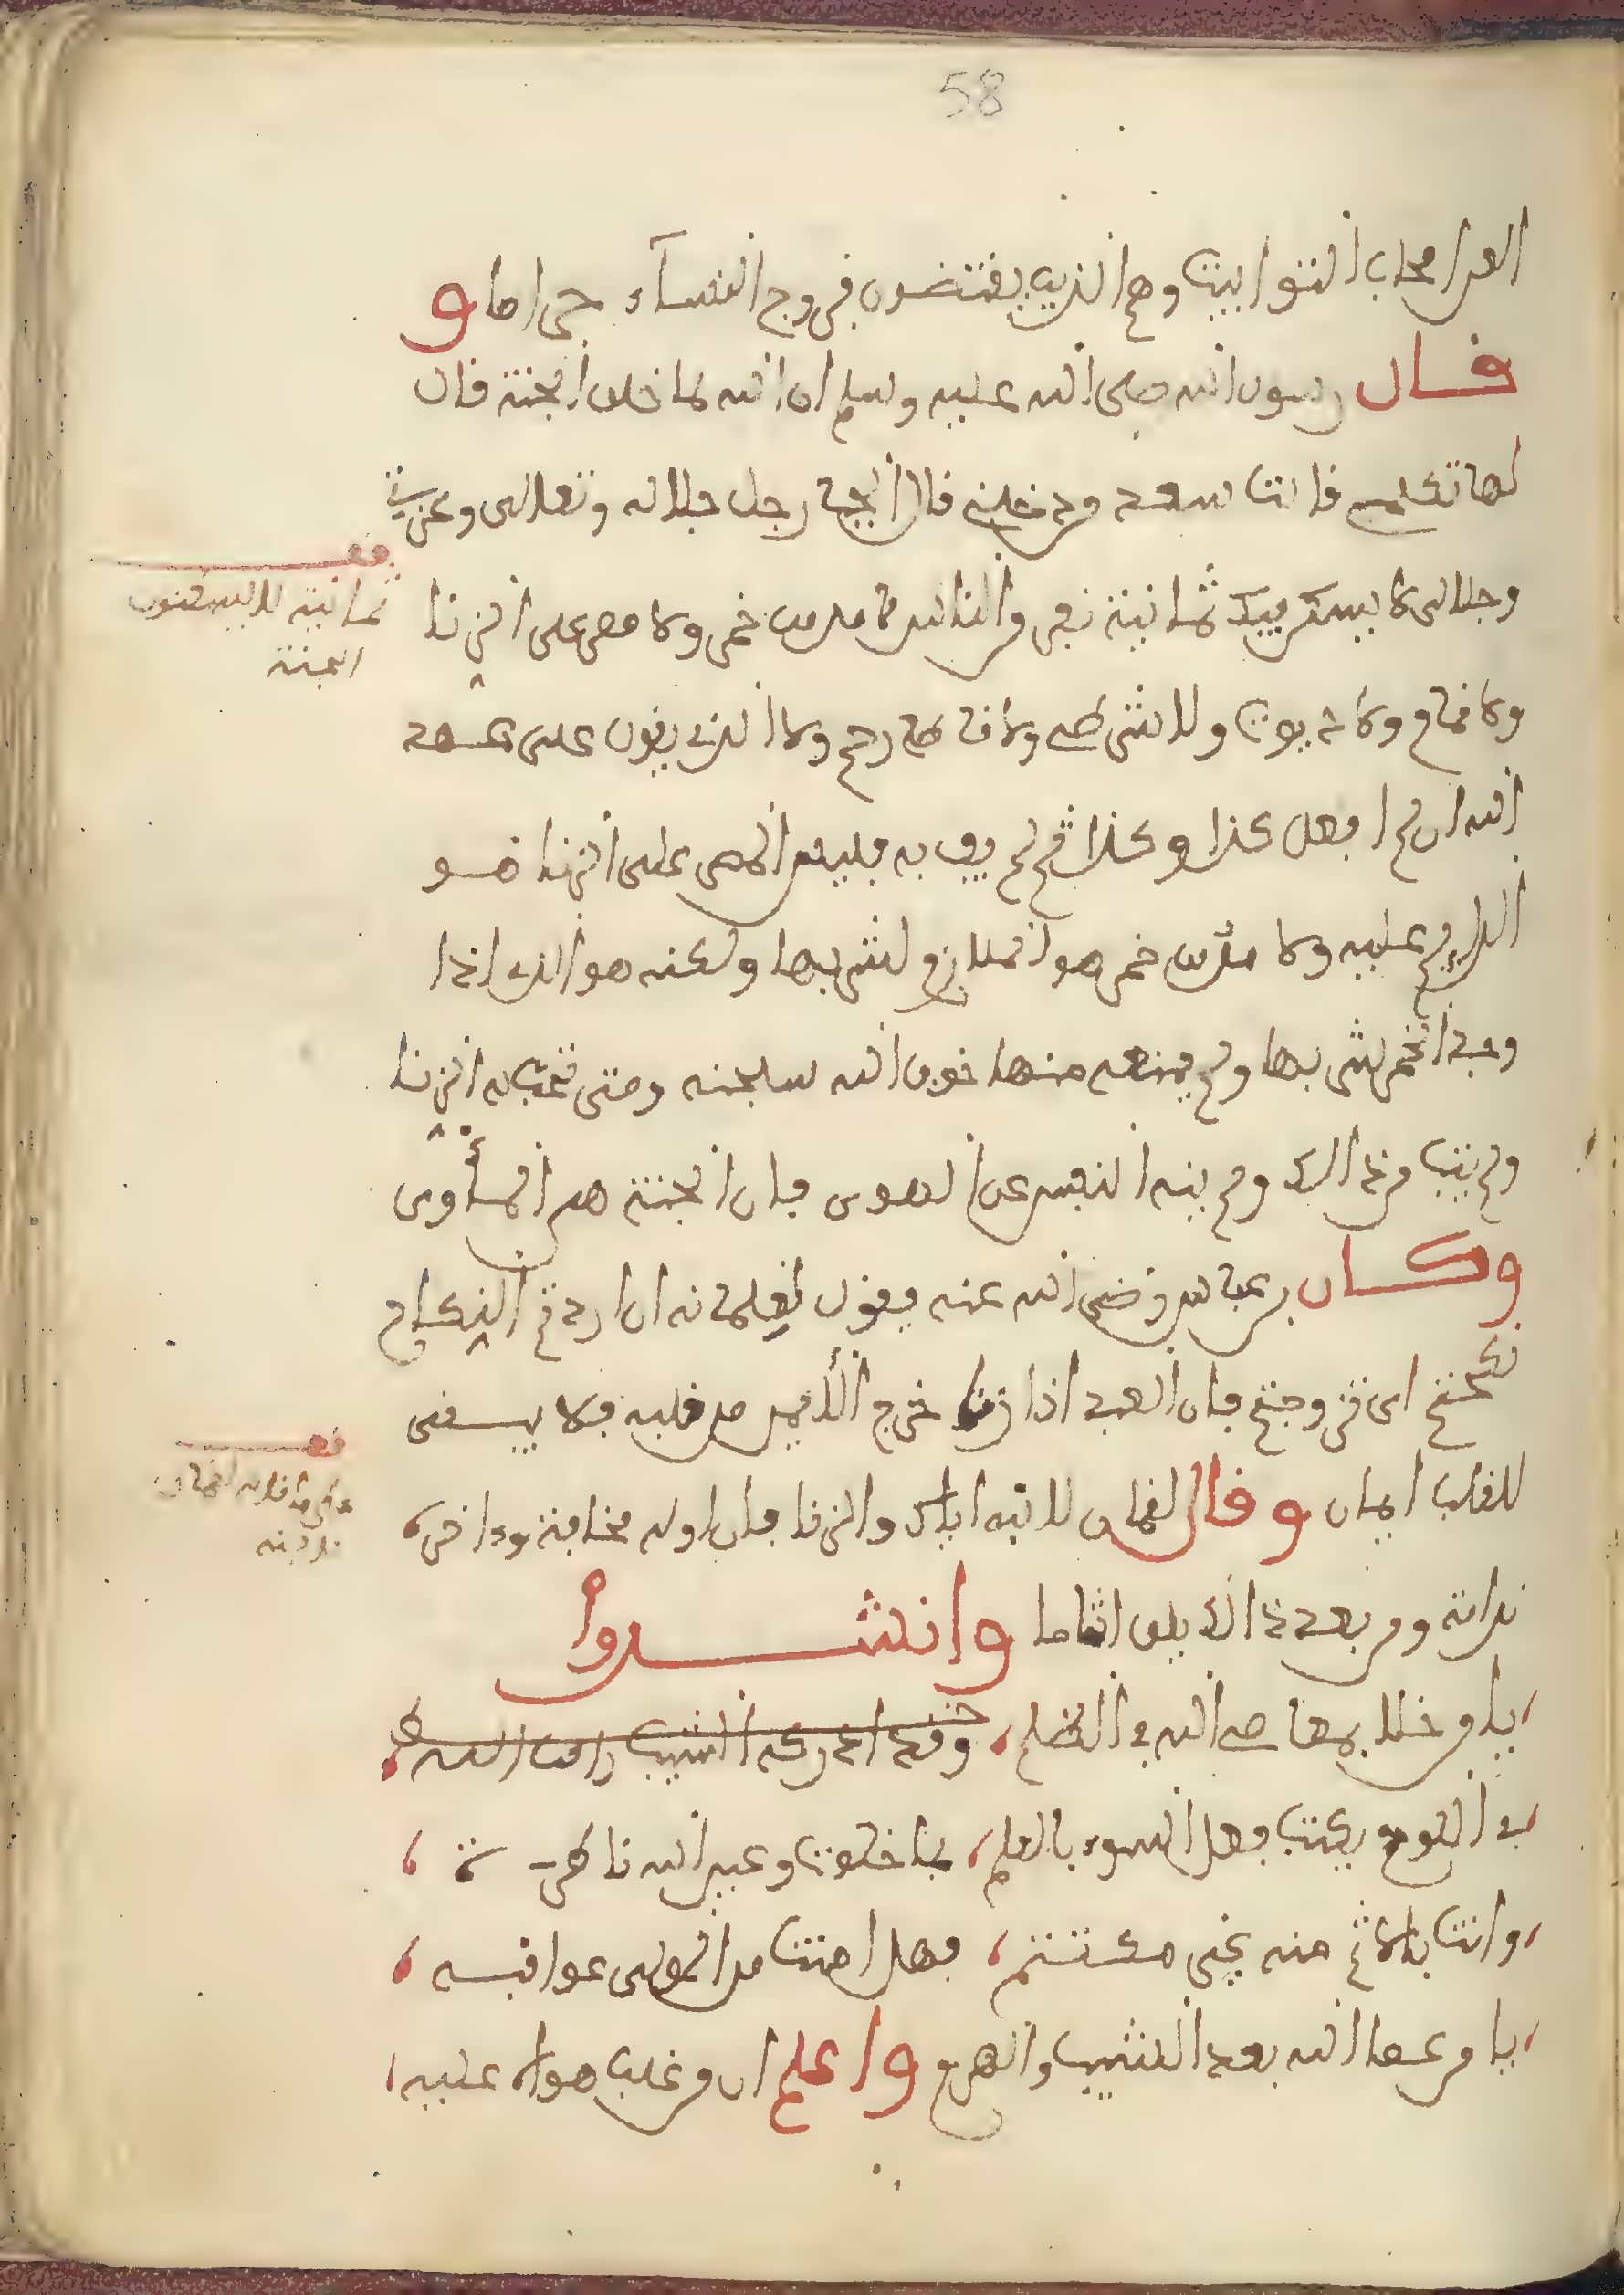 58
العذاب اصحاب التوابيت وهم الذين يفتضون فروج النساء حراما و
قال رسول الله صلى الله عليه وسلم ان الله لما خلق الجنة قال
لها تكلمي قالت سعد من دخلني قال الجبار جل جلاله وتعالى وعزتي
وجلالي لا يسكن فيك ثمانية نفر من الناس مدمن خمر ولا مصر على الزنا
ولا نمام ولا ديوث ولا شرطي ولا قاطع رحم ولا الذي يقول علي عهد
الله ان لم افعل كذا وكذا ثم لم يف به فليس المصر على الزنا هو
الدايم عليه ولا مدمن خمر هو الملازم لشربها ولكنه هو الذي اذا
وجد الخمر شربها ولم يمنعه منها خوف الله سبحنه ومتى تهيا له الزنا
ولم يتب من ذالك ولم ينه النفس عن الهوى فان الجنة هي المأوى
وكان بن عباس رضي الله عنه يقول لغلمانه ان اردتم النكاح
نكحتكم اى زوجتكم فان العبد اذا زنا خرج الأيمن من قلبه فلا يبقى
للقلب ايمان وقال لقمان لابنه اياك والزنا فان اوله مخافة وءاخره
ندامة ومن بعد ذالك يلق اثاما وانشدوا
يا من خلا بمعاصي الله في الظلم، وقد ادركه الشيب
في اللوح يكتب فعل السوء بالقلم، بها خلوت وعين الله ناظرة،
وانت بالاثم منه غير مكتتم، فهل امنت من المولى عواقبه،
يا من عصا الله بعد الشيب والهرم واعلم ان من غلب هواه عليه،
قف
ثمانية لا يسكنون
الجنة
قف
على ما قال لقمان
لابنه